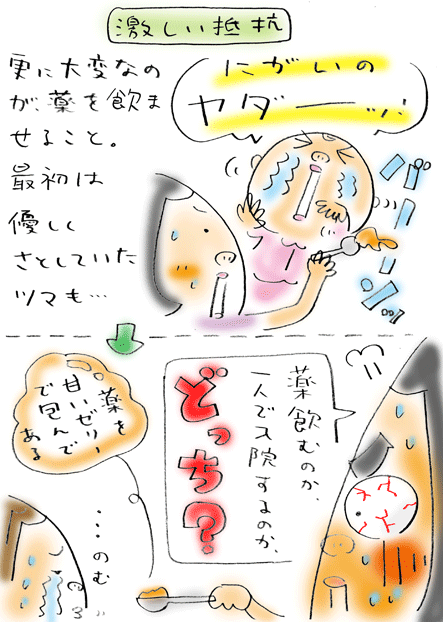 激しい抵抗
更に大変なの
が、薬を飲ま
せること。
最初は
優しく
さとしていた
ツマも…
にがいの
ヤダーーッ!
バシバシッ
薬飲むのか、
一人で入院するのか、
どっち?
薬を
甘いゼリー
で包んで
ある
…のむ